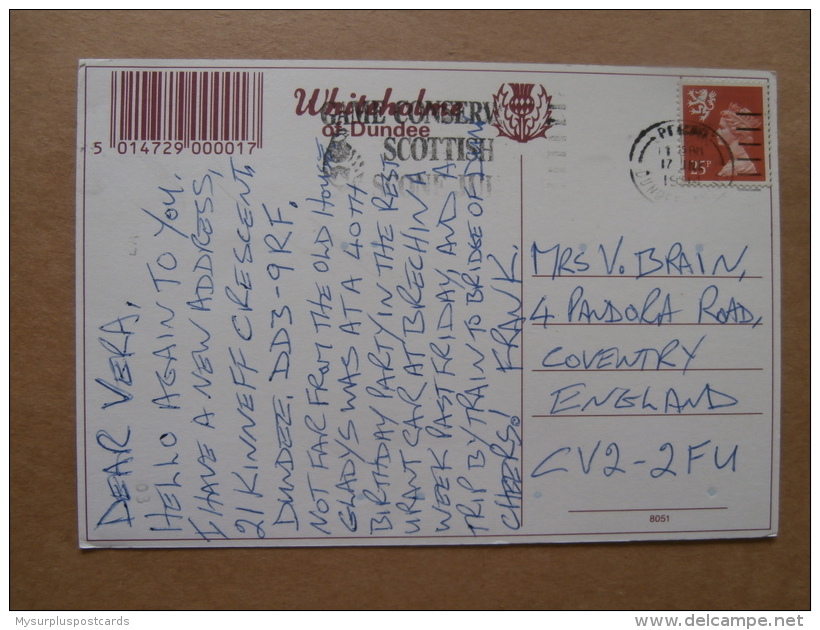 Whiteholme
of Dundee
5 014729 000017
GAME CONSERV
SCOTTISH
25P
17
DEAR VERA,
HELLO AGAIN TO YOU.
I HAVE A NEW ADDRESS,
21 KINNEFF CRESCENT,
DUNDEE. DD3-9RF.
NOT FAR FROM THE OLD HOUSE
GLADYS WAS AT A 40TH
BIRTHDAY PARTY IN THE REST
URANT CAR AT BRECHIN A
WEEK PAST FRIDAY, AND A
TRIP BY TRAIN TO BRIDGE OF DUN
CHEERS! FRANK.
MRS V. BRAIN,
4 PANDORA ROAD,
COVENTRY
ENGLAND
CV2-2FU
8051
03
Mysurpluspostcards
delcampe.net